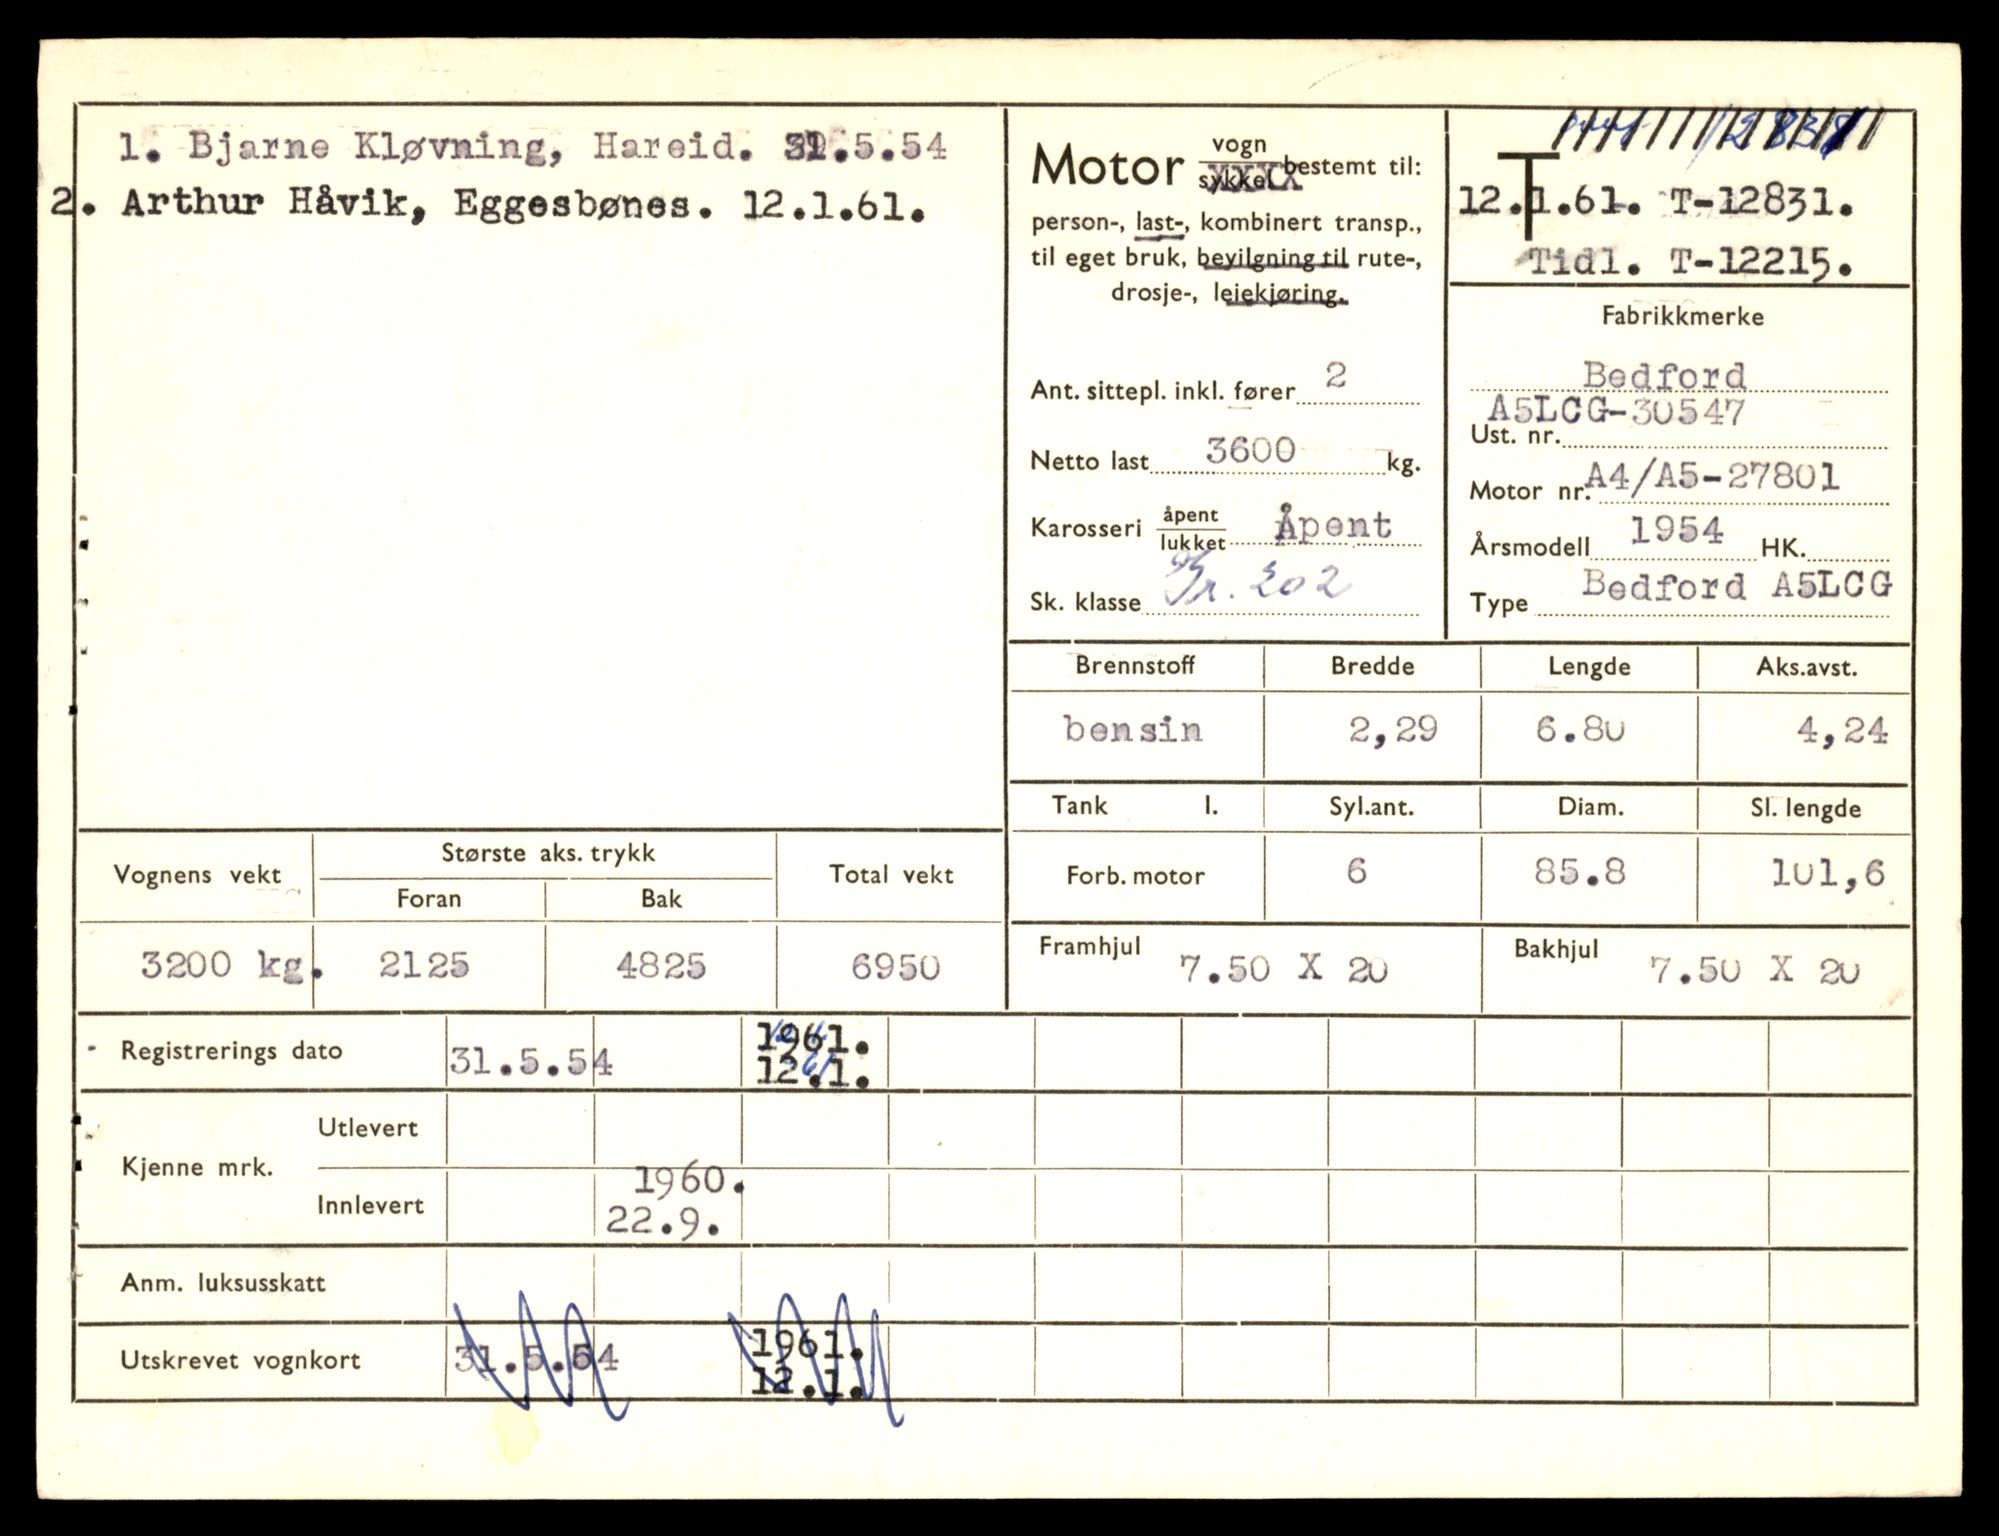 1. Bjarne Kløvning, Hareid. 31.5.54
2. Arthur Håvik, Eggesbønes. 12.1.61.
Motor vogn sykkel bestemt til:
person-, last-, kombinert transp.,
til eget bruk, bevilgning til rute-,
drosje-, leiekjøring.
Ant. sittepl. inkl. fører 2
Netto last 3600 kg.
Karosseri åpent lukket Åpent
Sk. klasse Gr. 202
T
12.1.61. T-12831.
Tidl. T-12215.
Fabrikkmerke
Bedford
A5LCG-30547
Ust. nr.
Motor nr. A4/A5-27801
Årsmodell 1954 HK.
Type Bedford A5LCG
Brennstoff Bredde Lengde Aks.avst.
bensin 2,29 6.80 4,24
Tank l. Syl.ant. Diam. Sl. lengde
Forb. motor 6 85.8 101,6
Framhjul 7.50 X 20 Bakhjul 7.50 X 20
Vognens vekt Største aks. trykk Total vekt
Foran Bak
3200 kg. 2125 4825 6950
Registrerings dato 31.5.54 1961.
12.1.
Kjenne mrk. Utlevert
Innlevert 1960.
22.9.
Anm. luksusskatt
Utskrevet vognkort 31.5.54 1961.
12.1.